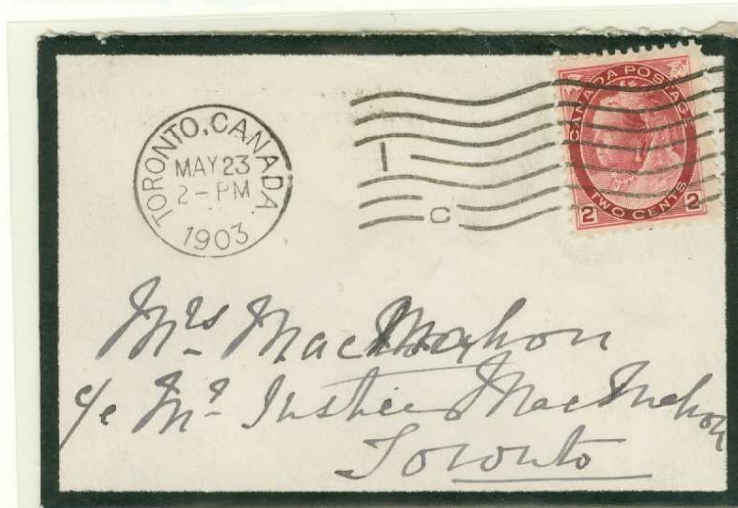 TORONTO, CANADA
MAY 23
2-PM
1903
I
C
CANADA POSTAGE
2 TWO CENTS 2
Mrs MacMahon
c/o Mr Justice MacMahon
Toronto